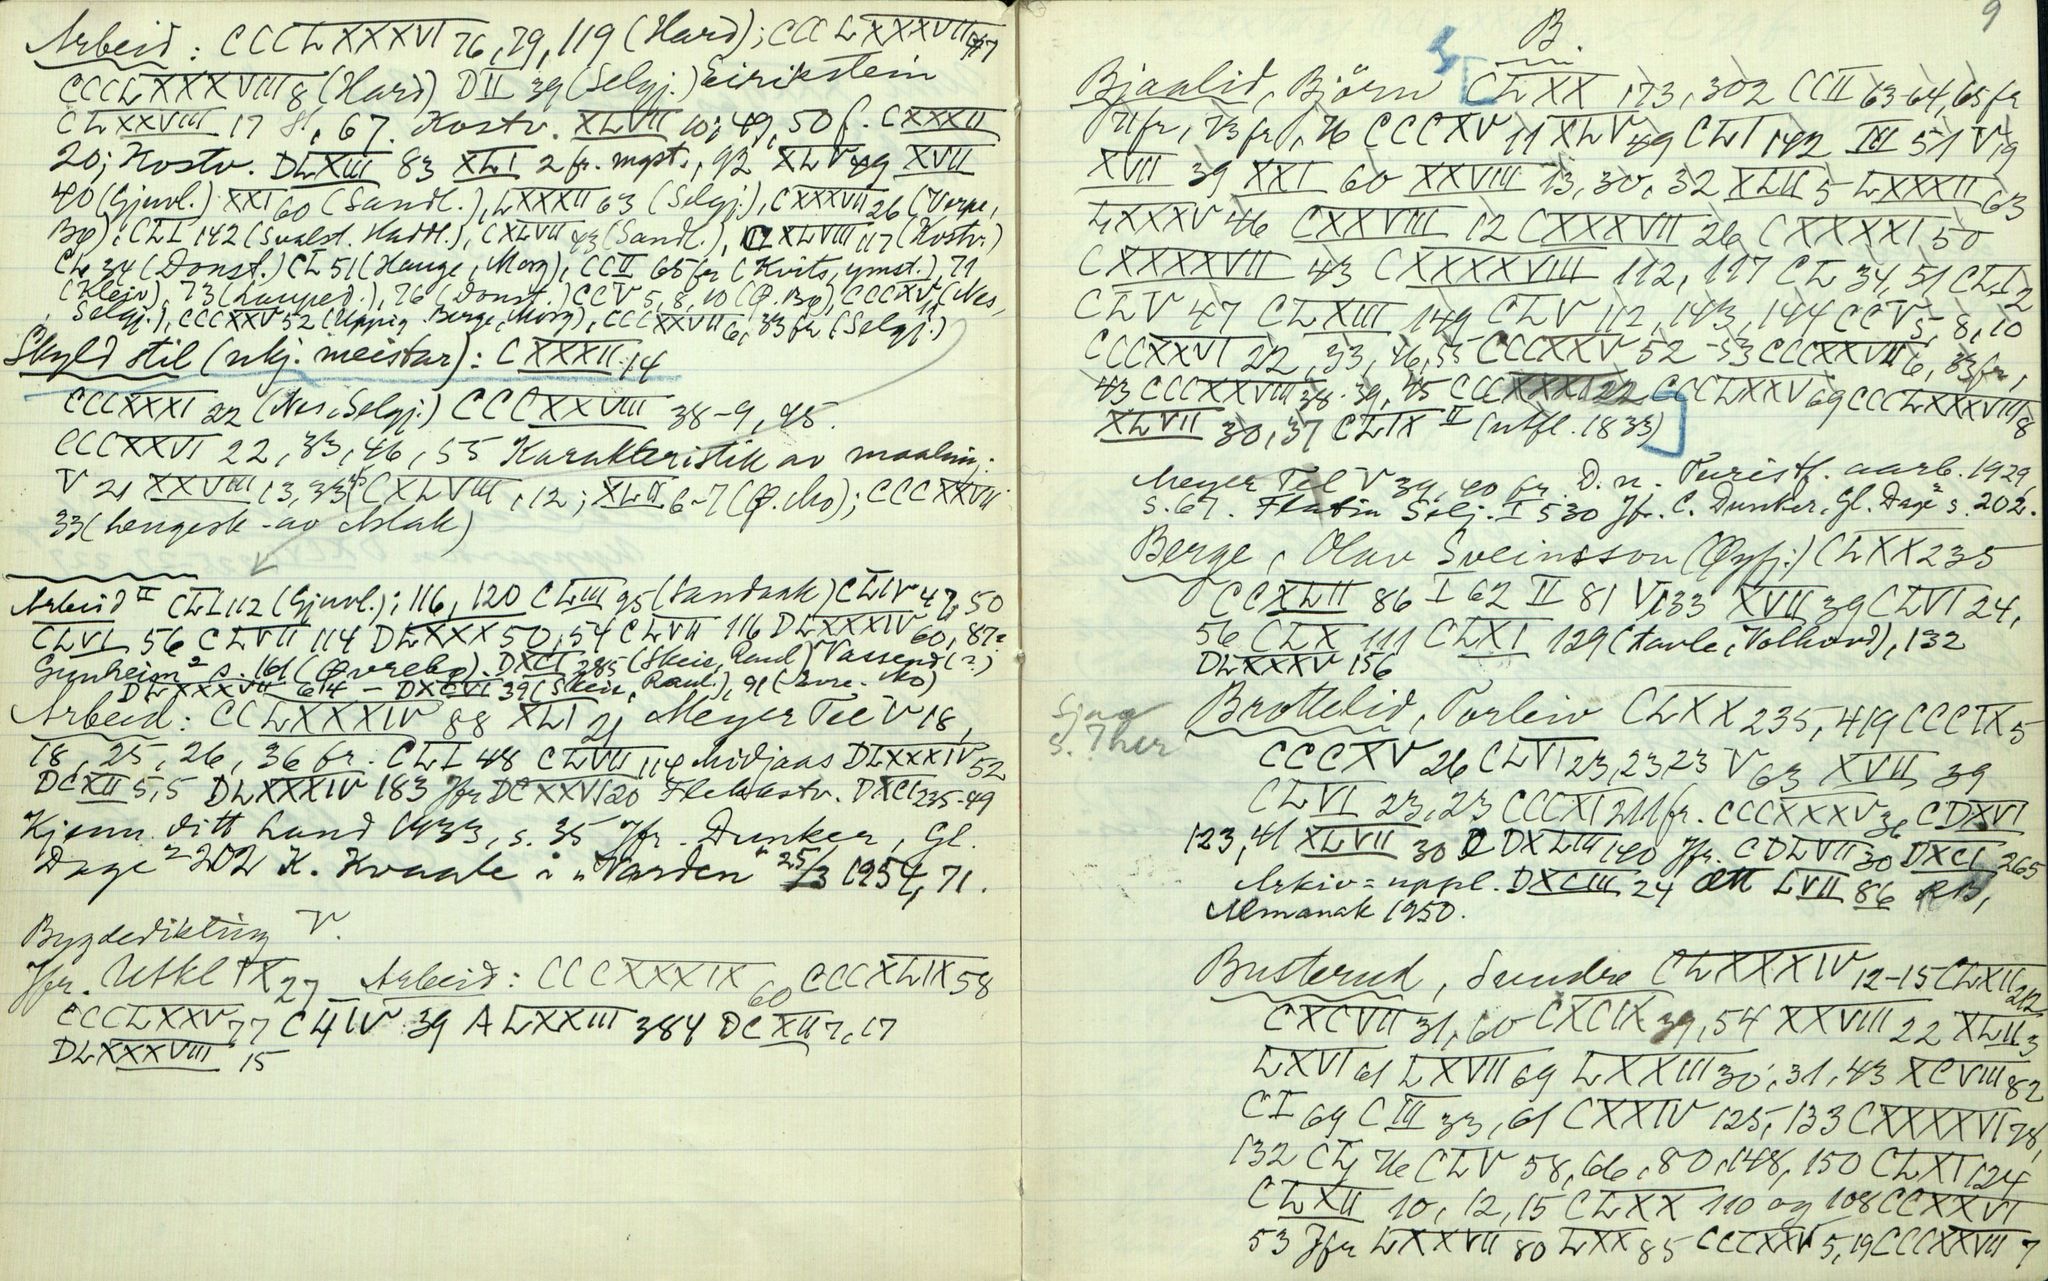 Arbeid: CCCLXXXVI 76, 79, 119 (Hard); CCCLXXXVII 47
CCCLXXXVIII 8 (Hard) DII 39 (Selgj.) Eirikstein
CLXXVIII 17, 67. Kostv. XLVII 10; 49, 50 f. CXXXII
20; Kostv. DLXIII 83 XLI 2 fr. mgst., 92 XLV 49 XVII
40 (Gjuvl.) XXI 60 (Sandl.), LXXXII 63 (Selgj.), CXXXVII 26 (Verpe,
Bø); CLI 142 (Svalst. Hadtl.), CXLVII 43 (Sandl.), CXLVIII 117 (Kostv.)
CL 34 (Donst.) CL 51 (Hauge, Morg), CCII 65 fr (Kvits, ymst.), 71
(Klejv), 73 (Lauped.), 76 (Donst.) CCV 5, 8, 10 (Ø. Bø), CCCXV 11 (Nes,
Selgj.), CCCXXV 52 (Uppig. Berge, Morg), CCCXXVII 6, 33 fr (Selgj.)
Skyld stil (ukj. meistar): CXXXII 14
CCCXXXI 22 (Nes, Selgj.) CCCXXVIII 38-9, 45.
CCCXXVI 22, 33, 46, 55 Karakteristik av maaling:
V 21 XXVIII 13, 33 CXLVIII, 12; XLII 6-7 (Ø. Mo); CCCXXVII
33 (Lengesk. av Aslak)
Arbeid II CLI 112 (Gjuvl.); 116, 120 CLIII 95 (Sandaak) CLIV 47, 50
CLVI 56 CLVII 114 DLXXX 50, 54 CLVII 116 DLXXXIV 60, 87?
Gunheim 2 s. 161 (Øverebø). DXCI 285 (Skeie, Raul.) Vassend (?)
DLXXXVII 614 - DXCVI 39 (Skeie, Raul.), 91 (Øvre. Mo)
Arbeid: CCLXXXIV 88 XLI 2; Meyer Tel V 18,
18, 25, 26, 36 fr. CLI 48 CLVII 114 Midjaas DLXXXIV 52
DCXII 5, 5 DLXXXIV 183 Jfr DCXXVI 20 Flekkstv. DXCI 235-49
Kjenn ditt land 1933, s. 35 Jfr. Dunker, Gl.
Dage 2 202 K. Kvaale i "Varden" 25/3 1954, 71.
Bygdedikting V.
Jfr. Utkl IX 27 Arbeid: CCCXXXIX 60 CCCXLIX 58
CCCLXXV 77 CLIV 39 A LXXIII 384 DCXII 7, 17
DLXXXVIII 15
9
B.
Bjaalid, Björn CLXX 173, 302 CCII 63-64, 65 fr
71 fr, 73 fr, 76 CCCXV 11 XLV 49 CLI 142 III 51 V 19
XVII 39 XXI 60 XXVIII 13, 30, 32 XLII 5 LXXXII 63
LXXXV 46 CXXVIII 12 CXXXVII 26 CXXXXI 50
CXXXXVII 43 CXXXXVIII 112, 117 CL 34, 51 CLI 2
CLV 47 CLXIII 149 CLV 112, 143, 144 CCV 5, 8, 10
CCCXXVI 22, 33, 46, 55 CCCXXV 52-53 CCCXXVII 6, 33 fr,
43 CCCXXVIII 38-39, 45 CCCXXXI 22 CCCLXXV 69 CCCLXXXVIII 8
XLVII 30, 37 CLIX II (utfl. 1833)
Meyer Tel V 39, 40 fr. D. n. Turistf. aarb. 1929,
s. 67. Flatin Selj. I 530 Jfr. C. Dunker, Gl. Dage 2 s. 202.
Berge, Olav Sveinsson (Øyfj.) CLXX 235
CCXLII 86 I 62 II 81 V 133 XVII 39 CLVI 24,
56 CLX 111 CLXI 129 (tavle, Volkord), 132
DLXXXV 156
Brottelid, Torleiv CLXX 235, 419 CCCIX 5
CCCXV 26 CLVI 23, 23, 23 V 63 XVII 39
CLVI 23, 23 CCCXI 211 fr. CCCXXXV 36 CDXVI
123, 41 XLVII 30 DXLIII 140 Jfr. CDLVII 30 DXCI 265
Arkiv = uppl. DXCIII 24 Ætt LVII 86 RB,
Almanak 1950.
Busterud, Sundre CLXXXIV 12-15 CLXII 212
CXCVII 31, 60 CXCIX 39, 54 XXVIII 22 XLII 3
LXVI 61 LXVII 69 LXXIII 30, 31, 43 XCVIII 82
CI 69 CIII 33, 61 CXXIV 125, 133 CXXXXVI 78,
132 CL, 76 CLV 58, 66, 80, 148, 150 CLXI 124
CLXII 10, 12, 15 CLXX 110 og 108 CCXXVI
53 Jfr LXXVII 80 LXX 85 CCCXXV 5, 19 CCCXXVII 7